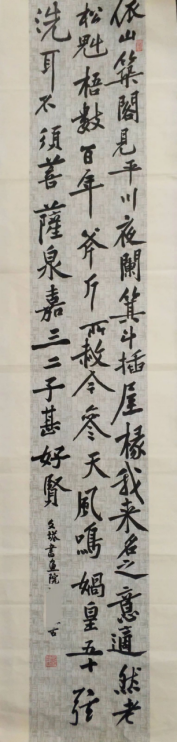 依山築閣見平川夜闌箕斗插屋椽我来名之意適然老
松魁梧數百年斧斤所赦今參天風鳴媧皇五十弦
洗耳不須菩薩泉嘉三二子甚好賢
書画院